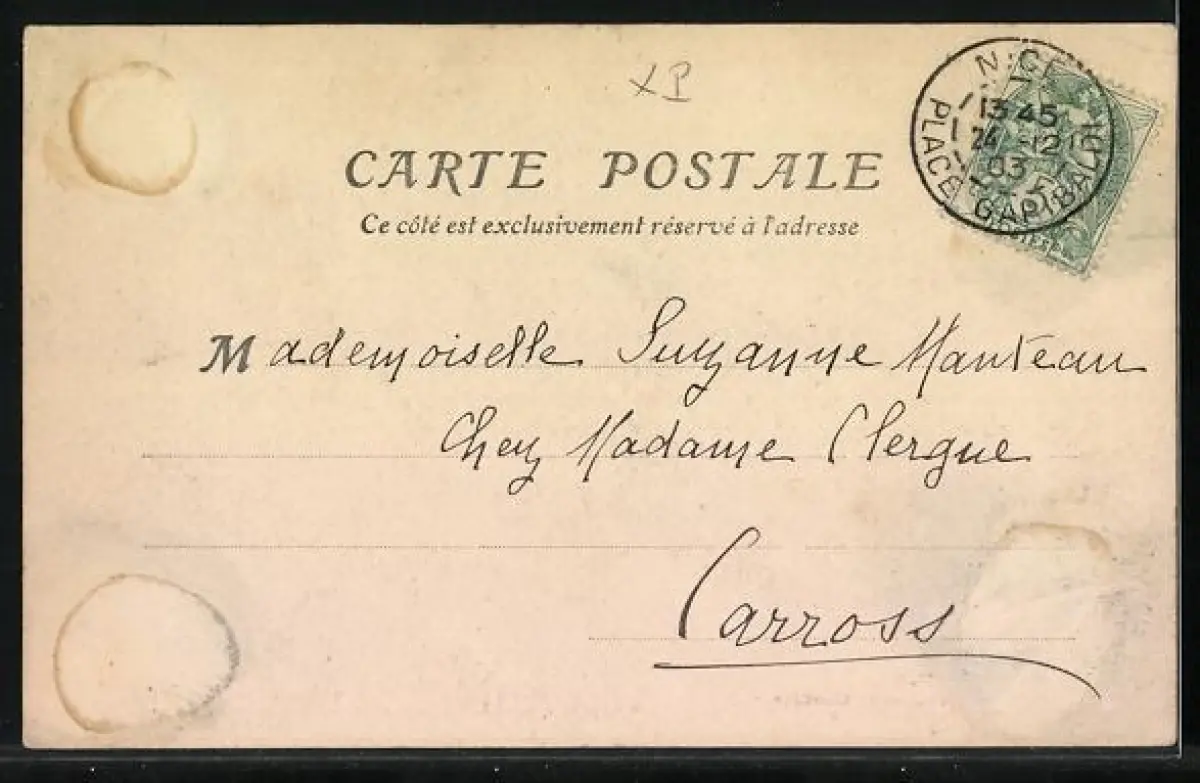 XP
NICE
13 45
24 -12
03
PLACE GARIBALDI
CARTE POSTALE
Ce côté est exclusivement réservé à l'adresse
Mademoiselle Suzanne Manteau
Chez Madame Clergue
Carross